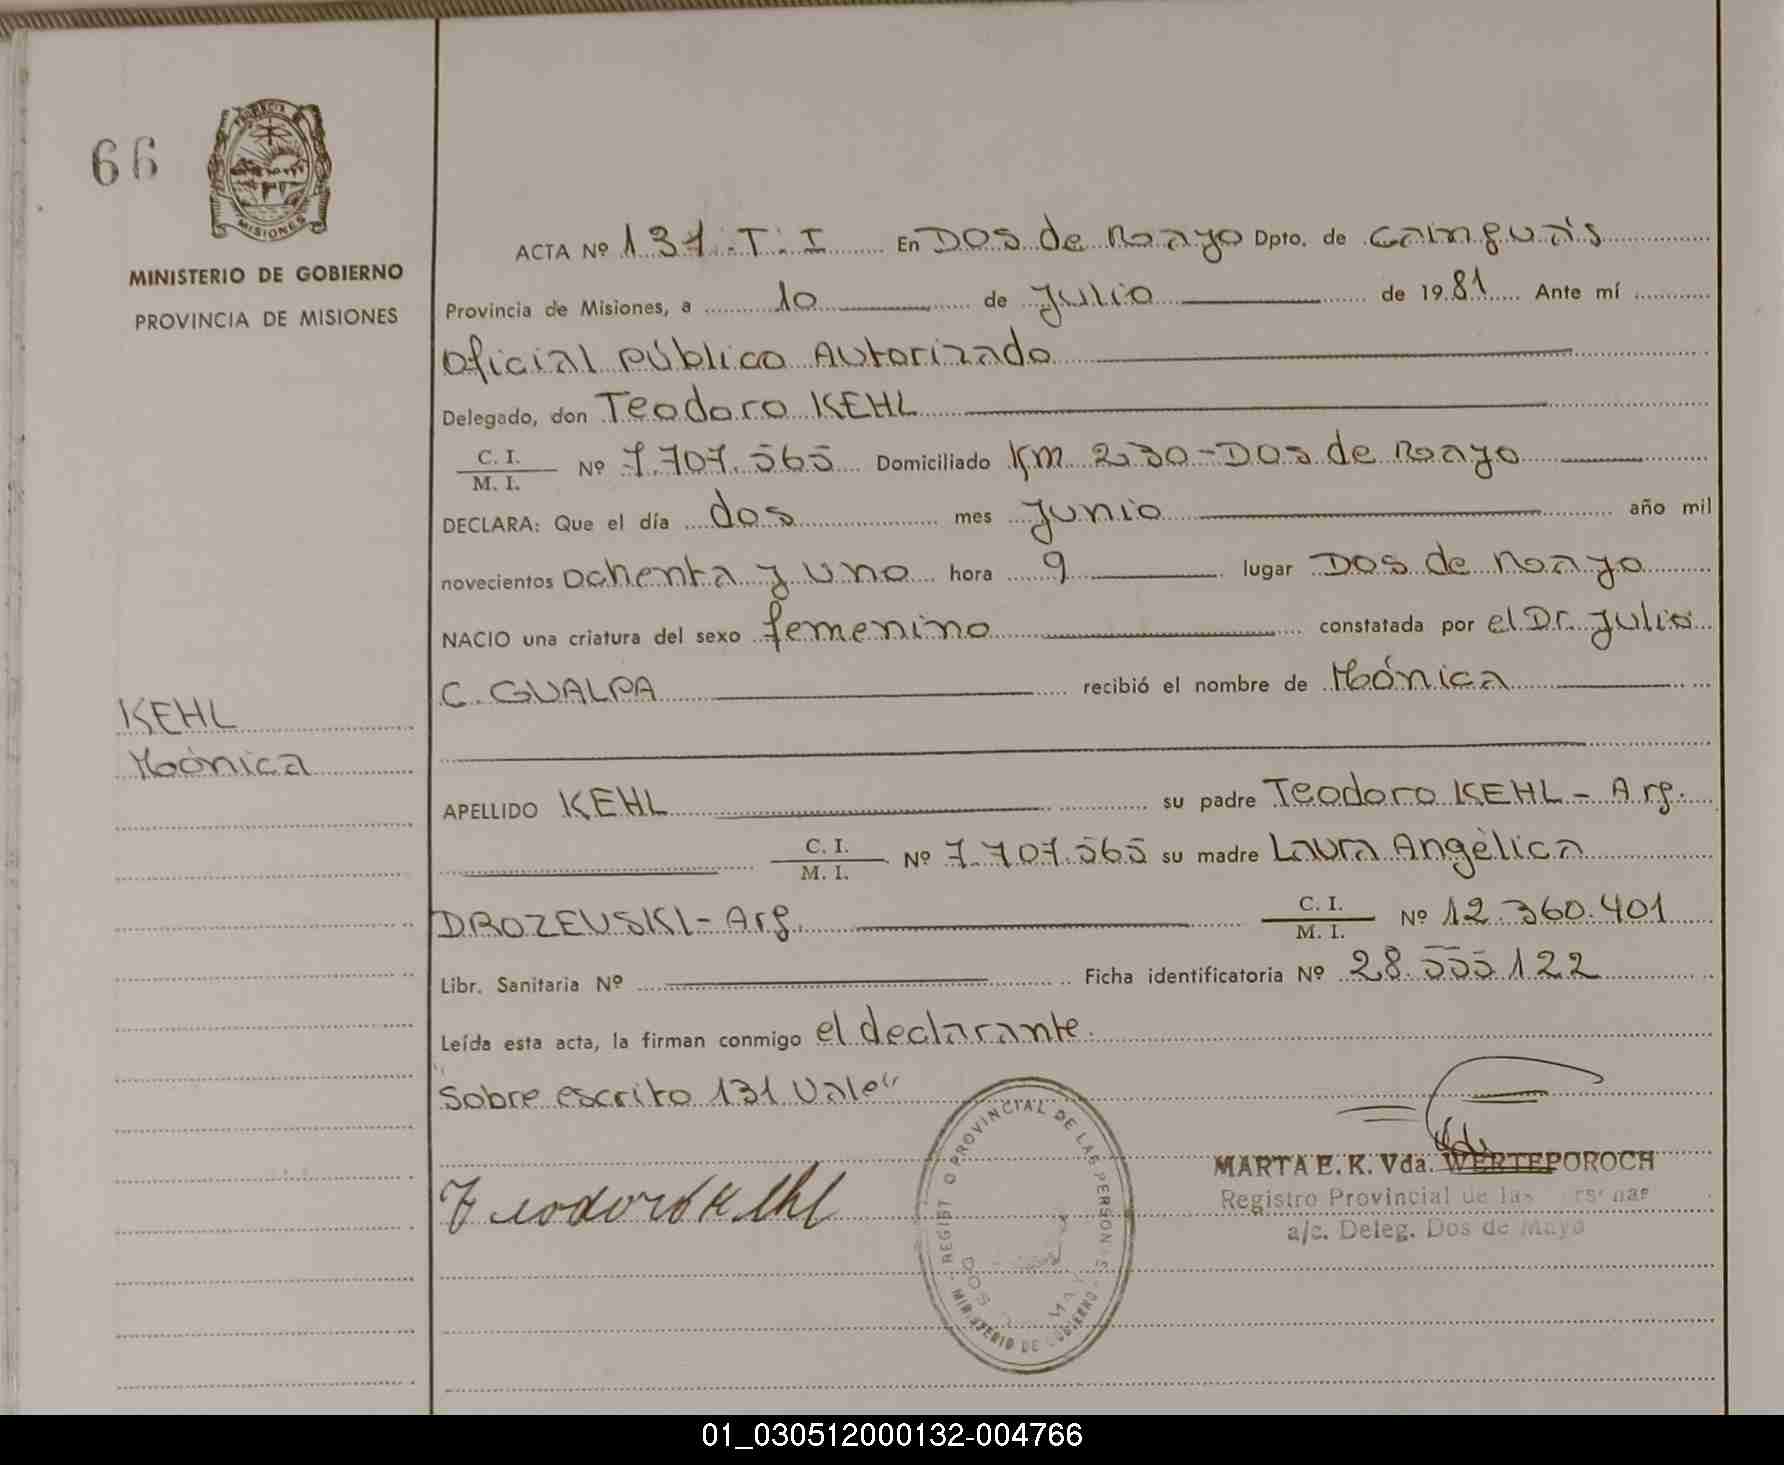 66
PROVINCIA
MISIONES
MINISTERIO DE GOBIERNO
PROVINCIA DE MISIONES
KEHL
Mónica
ACTA Nº 131 T. I En DOS de Mayo Dpto. de Cainguás
Provincia de Misiones, a 10 de Julio de 1981 Ante mí
Oficial Público Autorizado
Delegado, don Teodoro KEHL
C. I.
M. I. Nº 7.707.565 Domiciliado Km 230-Dos de Mayo
DECLARA: Que el día dos mes Junio año mil
novecientos Ochenta y uno hora 9 lugar Dos de Mayo
NACIO una criatura del sexo femenino constatada por el Dr. Julio
C. GUALPA recibió el nombre de Mónica
APELLIDO KEHL su padre Teodoro KEHL - Arg.
C. I.
M. I. Nº 7.707.565 su madre Laura Angélica
DROZEUSKI - Arg. C. I.
M. I. Nº 12.360.401
Libr. Sanitaria Nº Ficha identificatoria Nº 28.555122
Leída esta acta, la firman conmigo el declarante.
"Sobre escrito 131 Vale"
Teodoro Kehl
REGISTRO PROVINCIAL DE LAS PERSONAS
DOS MAY
MINISTERIO DE GOBIERNO
MARTA E. K. Vda. WERTEPOROCH
Registro Provincial de las Personas
a/c. Deleg. Dos de Mayo
01_030512000132-004766